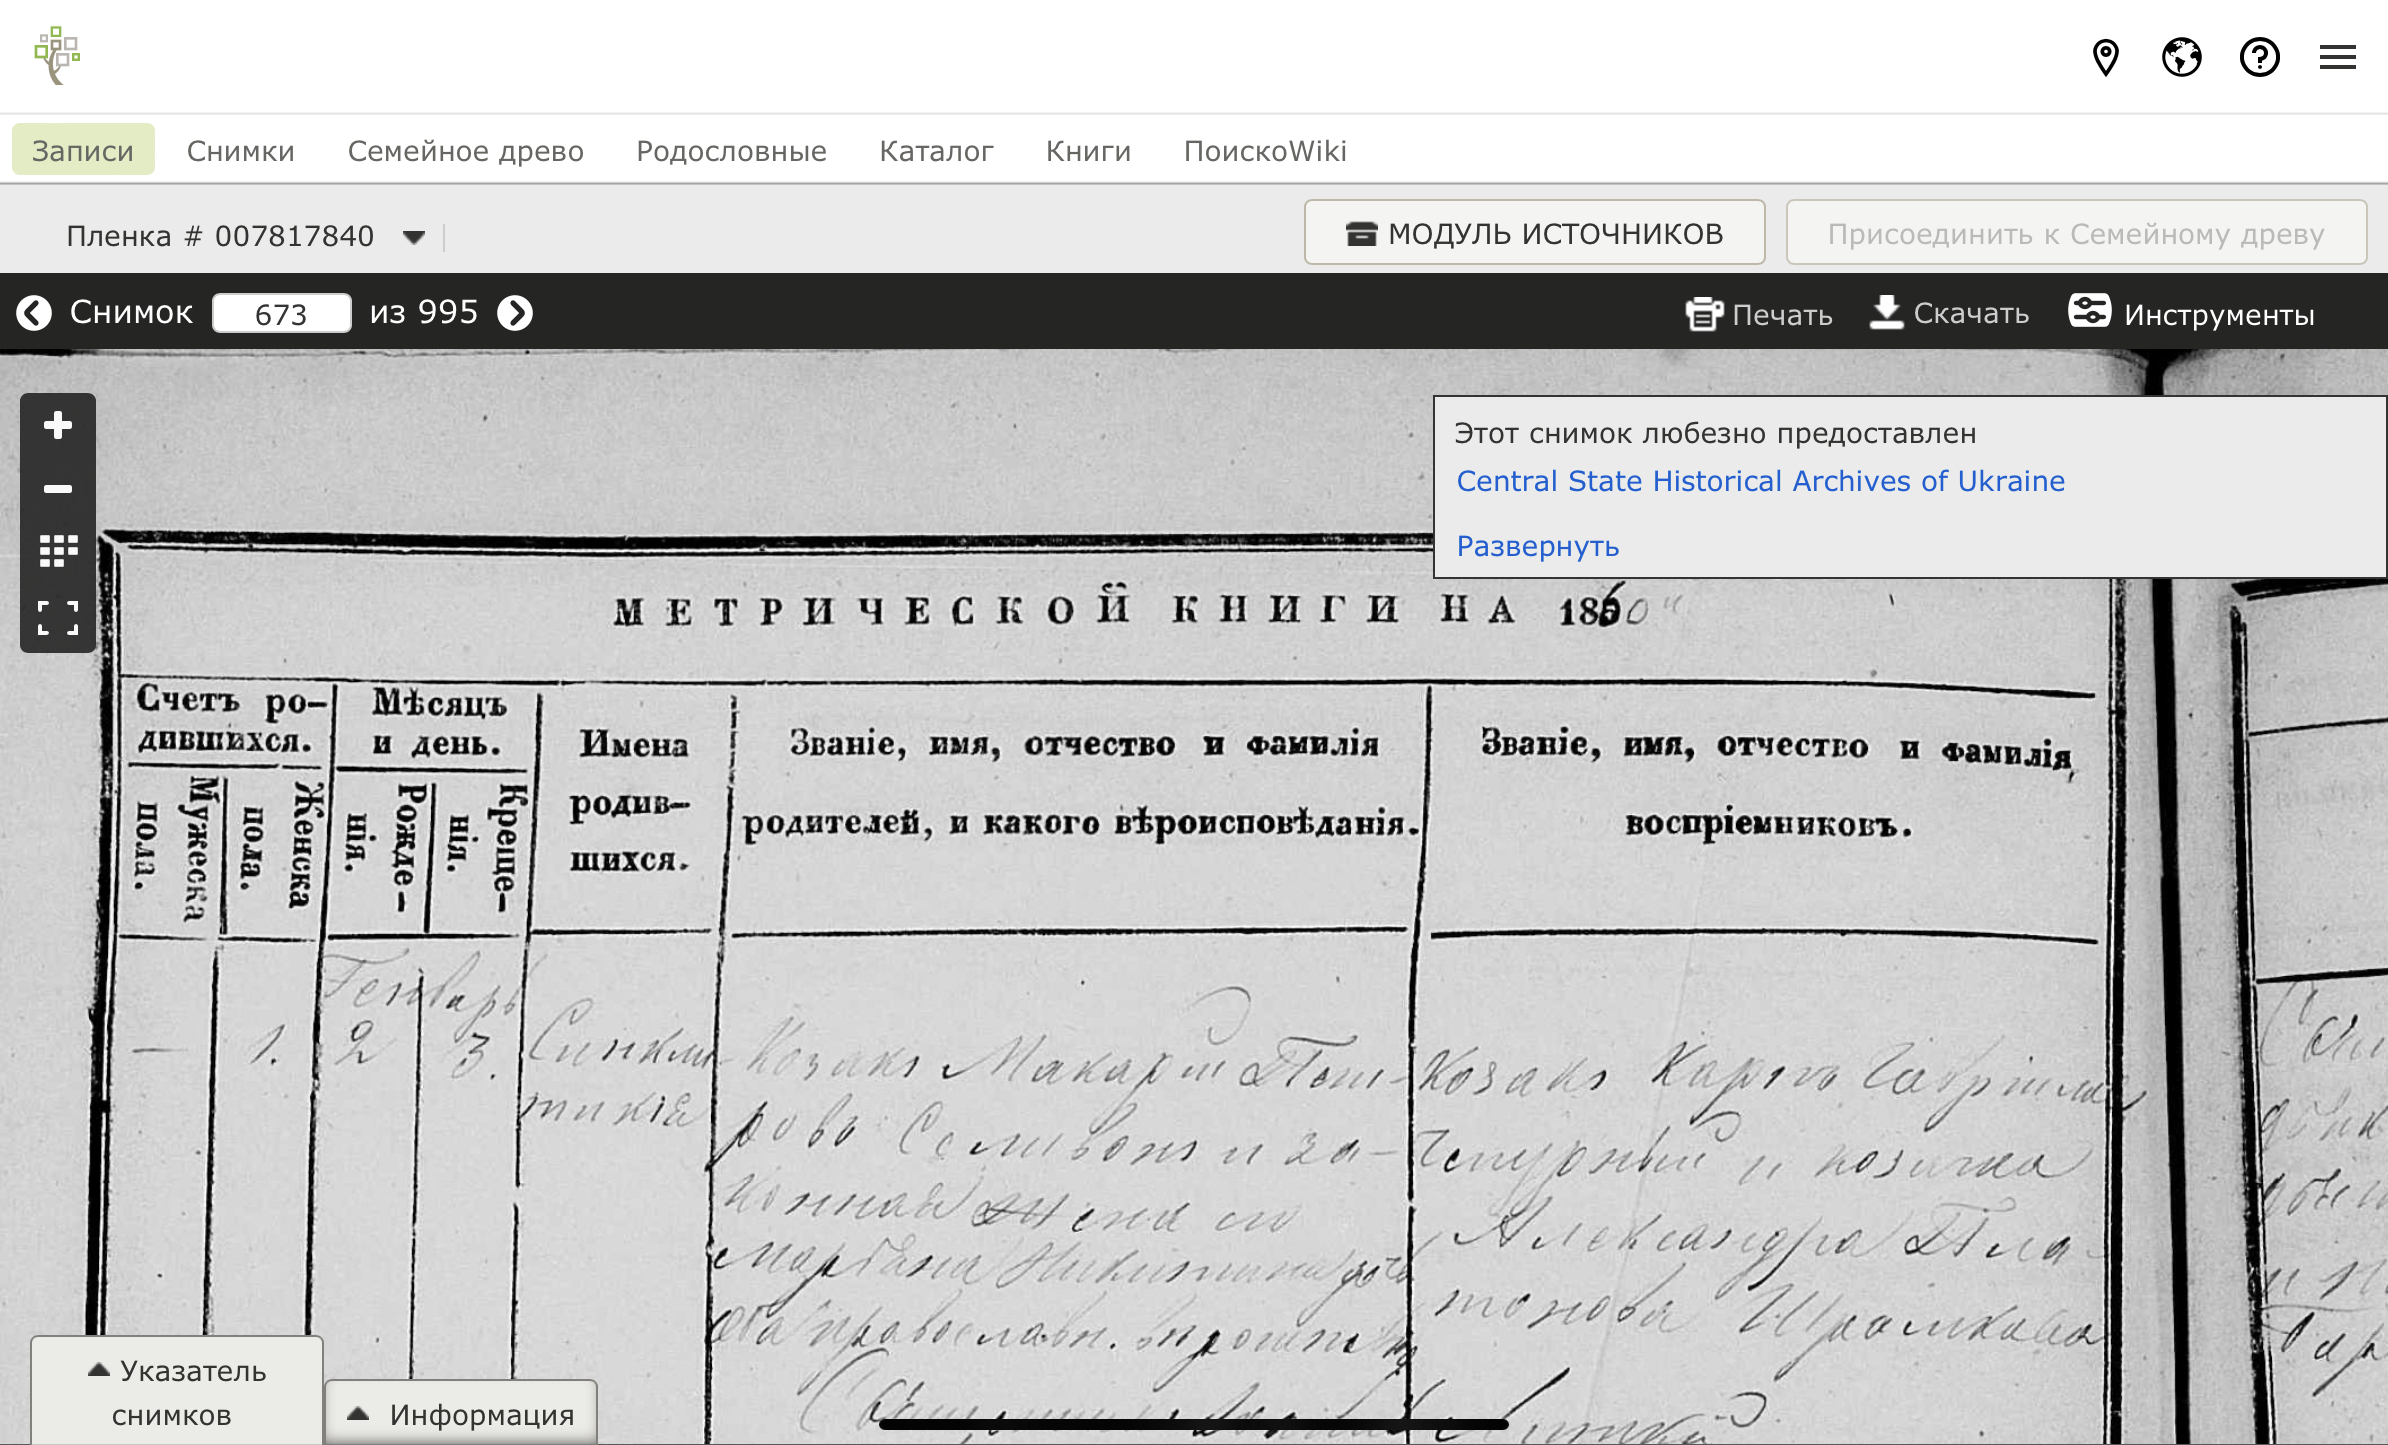 Записи Снимки Семейное древо Родословные Каталог Книги ПоискоWiki
Пленка # 007817840
МОДУЛЬ ИСТОЧНИКОВ
Присоединить к Семейному древу
Снимок 673 из 995
Печать Скачать Инструменты
Этот снимок любезно предоставлен
Central State Historical Archives of Ukraine
Развернуть
МЕТРИЧЕСКОЙ КНИГИ НА 1860
Счетъ ро-
дившихся.
Мужеска
пола.
Женска
пола.
Мѣсяцъ
и день.
Рожде-
нія.
Креще-
нія.
Имена
родив-
шихся.
Званіе, имя, отчество и фамилія
родителей, и какого вѣроисповѣданія.
Званіе, имя, отчество и фамилія
воспріемниковъ.
Генварь
— 1. 2 3.
Синкли-
тикія
Козакъ Макарій Пет-
ровъ Селивонъ и за-
конная жена его
Марѳана Никитина
оба православн.
Козакъ Карпъ Гавріилов
Чепурный и козачка
Александра Пла-
тонова Шрамкова
Указатель
снимков
Информация